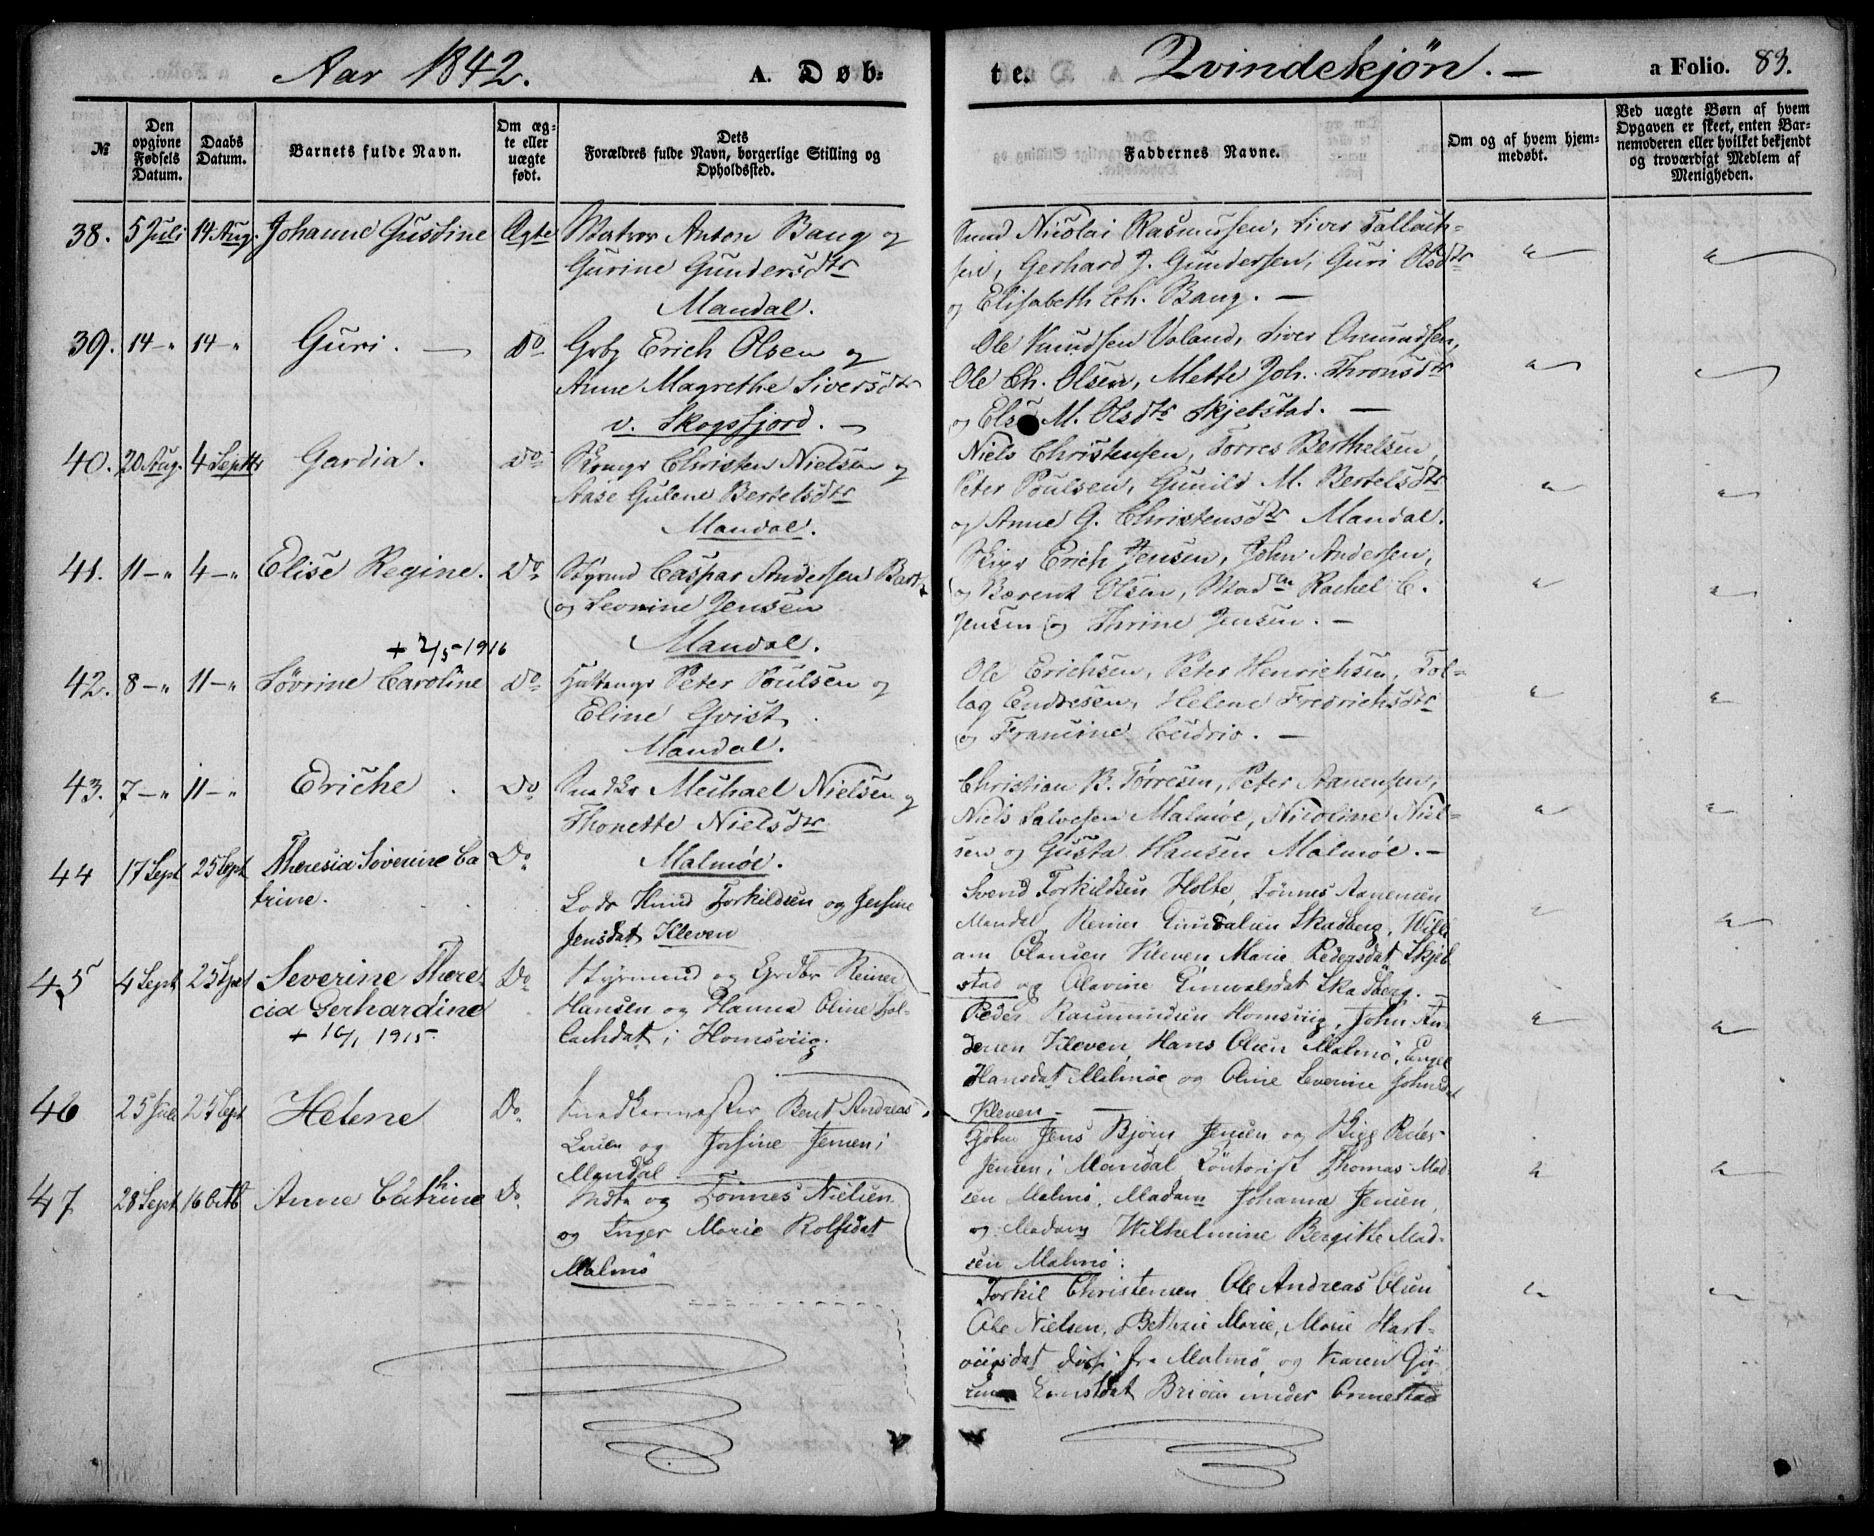 Aar 1842. A. Døb-
te. Qvindekjön. — a Folio. 83.
№ Den opgivne Fødsels Datum. Daabs Datum. Barnets fulde Navn. Om ægte eller uægte født. Dets Forældres fulde Navn, borgerlige Stilling og Opholdssted.
Faddernes Navne. Om og af hvem hjemmedøbt. Ved uægte Børn af hvem Opgaven er skeet, enten Barnemoderen eller hvilket bekjendt og troværdigt Medlem af Menigheden.
38. 5 Juli 14 Aug. Johanne Gustine Ægte Matros Anton Bang og
Gurine Gundersdtr
Mandal.
Nicolai Rasmussen, Siver Tallach-
sen, Gerhard J. Gundersen, Guri Olsdtr
og Elisabeth Ch. Bang. —
39. 14 — " 14 — " Guri. — Do Grbr Erich Olsen og
Anne Magrethe Siversdtr
v. Skogsfjord. —
Ole Knudsen Valand, Siver Omundsen,
Ole Ch. Olsen, Mette Joh. Thronsdtr
og Else M. Olsdtr Skjebstad. —
40. 20 Aug. 4 Septbr Gardia. Do Christen Nielsen og
Aase Gulene Bertelsdtr
Mandal.
Niels Christensen, Torres Berthelsen,
Peter Poulsen, Gunild M. Bertelsdtr
og Anne G. Christensdtr Mandal.
41. 11 — " 4 — " Elise Regine. Do Styrmd Caspar Andersen
og Leonine Jensen
Mandal.
Skipr Erich Jensen, John Andersen,
og Bærent Olsen, Madm Rachel C.
Jensen og Thrine Jensen. —
+ 2/5 - 1916
42. 8 — " 11 — " Sövrine Caroline Do Peter Poulsen og
Eline Qvist
Mandal.
Ole Erichsen, Peter Henrichsen, Tol-
lag Endresen, Helene Fredrichsdtr
og Francine —
43. 7 — " 11 — " Eriche Do Snedkr Michael Nielsen og
Thonette Nielsdtr
Malmöe.
Christian B. Törresen, Peter Aanensen,
Niels Salvesen Malmöe, Nicoline Niel-
sen og Gusta Hansen Malmöe. —
44 17 Sept 25 Sept Theresia Söverine Ca
trine. Do Lods Torkildsen og Jensine
Jensdat Kleven
Svend Torkildsen Holte, Tönnes Aanensen
Mandal, Reiner Skadberg, Willi
am Olausen Kleven Marie Pedersdat Skjeb
stad og Olavine Skadberg. —
45 4 Sept 25 Sept Severine There-
cia Gerhardine Do Styrmand og Grdbr Reiner
Hansen og Hanna Oline Tol-
lachdat i Homsviig.
+ 16/1 1915
Peder Rasmussen Homsviig, John An-
dersen Kleven, Hans Olsen Malmö, Engel
Hansdat Malmöe og Oline Severine Johnsdat
Kleven —
46 25 Juli 25 Sept Helene Do. Snedkermester Bent Andreas
Larsen og Josine Jensen i
Mandal
Jens Björn Jensen og Skipp Peder
Jensen i Mandal Thomas Mad
sen Malmö, Madam Johanne Jensen,
og Madam Wilhelmine Bergitte Mad-
sen Malmö.
47 28 Sept 16 Octb Anne Cathrine Do Tönnes Nielsen
og Inger Marie Rolfsdat
Malmö
Torkil Christensen Ole Andreas Olsen
Ole Nielsen, Marie, Marie Hart-
vigsdat fra Malmö og Karen Gu-